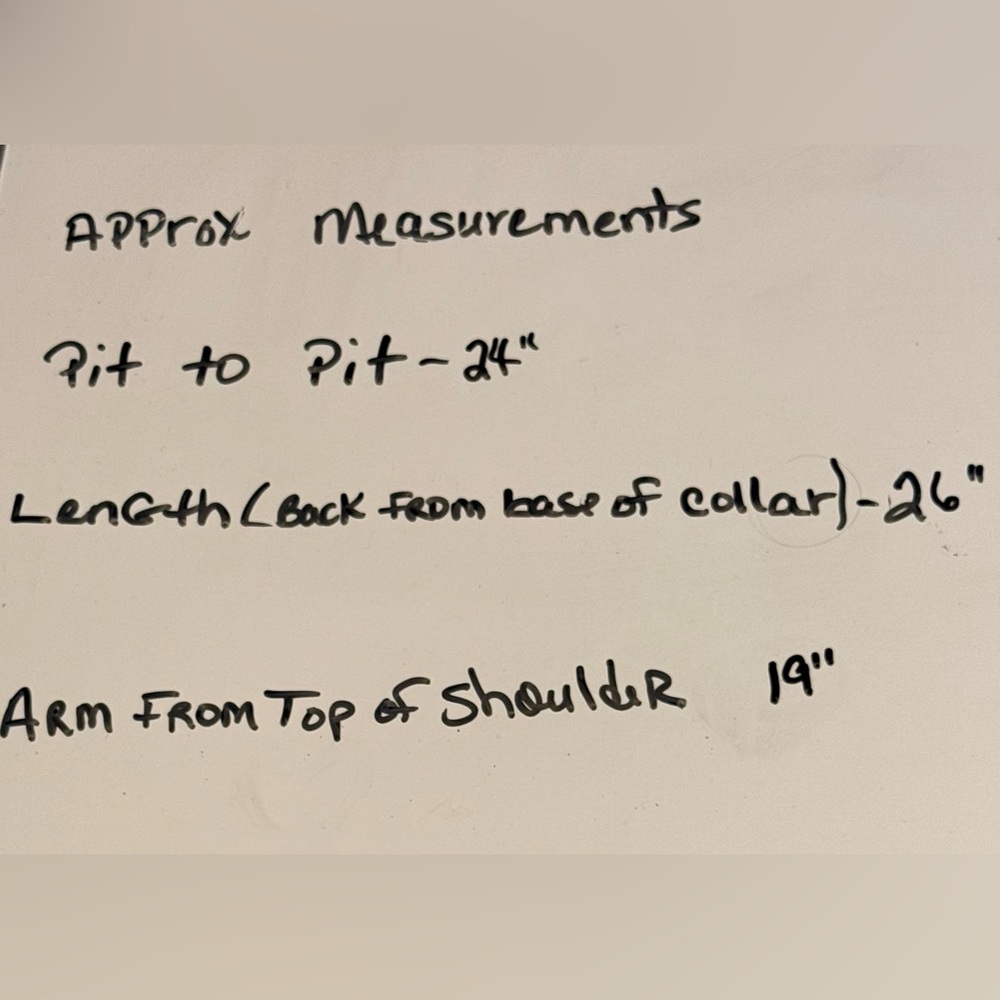 Approx Measurements
Pit to Pit - 24"
Length (Back From base of collar) - 26"
Arm From Top of Shoulder 19"